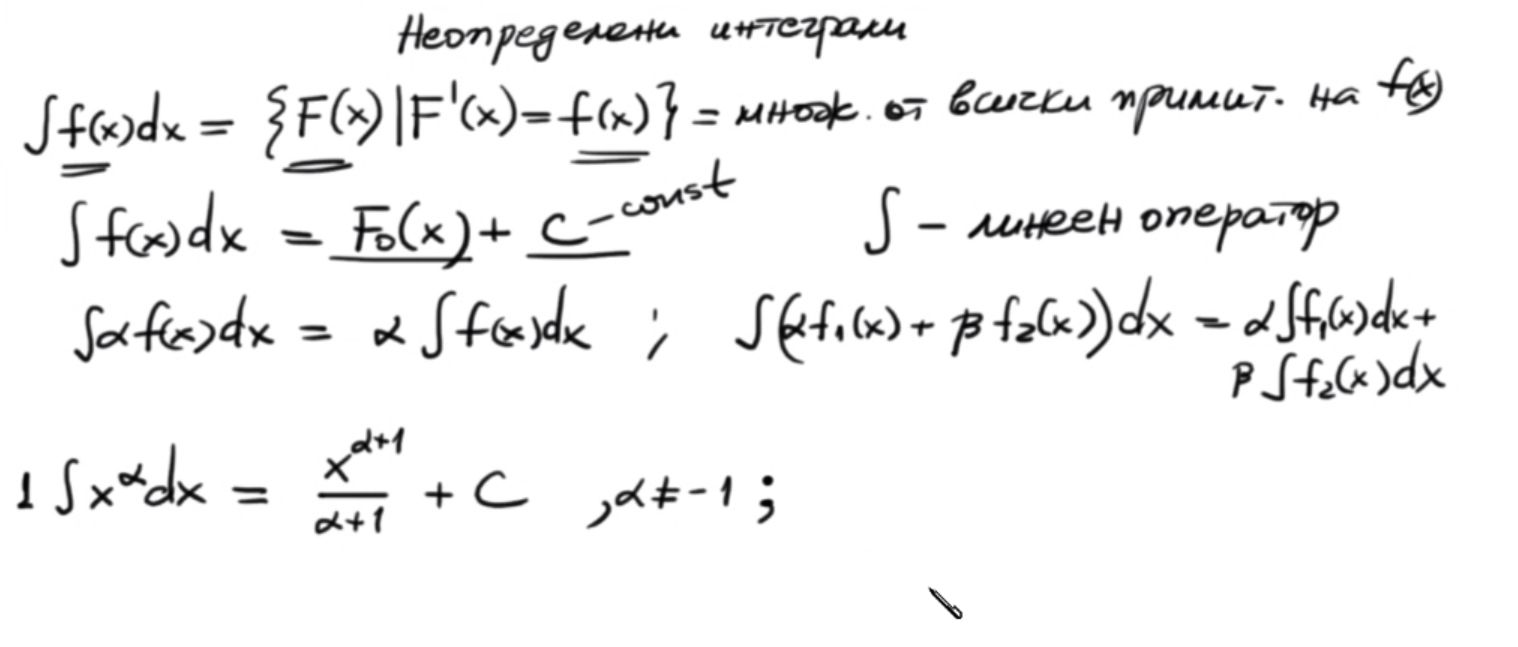 Неопределени интеграли
∫f(x)dx = {F(x)|F'(x)=f(x)} = множ. от всички примит. на f(x)
∫f(x)dx = F₀(x) + C - const ∫ - линеен оператор
∫αf(x)dx = α∫f(x)dx ; ∫(αf₁(x) + βf₂(x))dx = α∫f₁(x)dx +
β∫f₂(x)dx
1 ∫x^α dx = x^(α+1)/(α+1) + C , α ≠ -1 ;